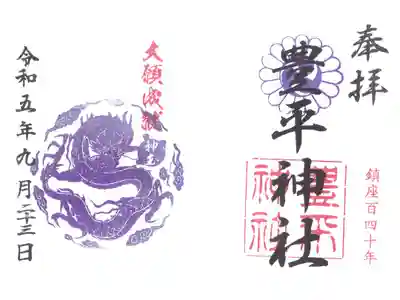 奉拝
鎮座百四十年
豊平神社
豊平
神社
大願成就
令和五年九月二十三日